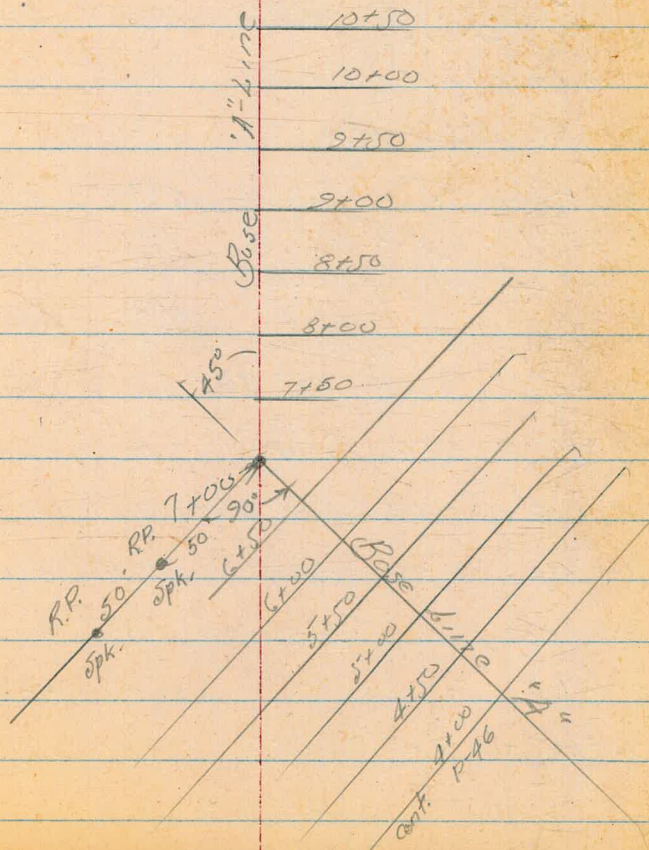 10+50
10+00
9+50
9+00
8+50
8+00
7+50
Base "A"-Line
45°
7+00
90°
50'
R.P.
Spk.
50'
R.P.
Spk.
6+50
6+00
5+50
5+00
4+50
4+00
cont. P-46
Base Line "A"